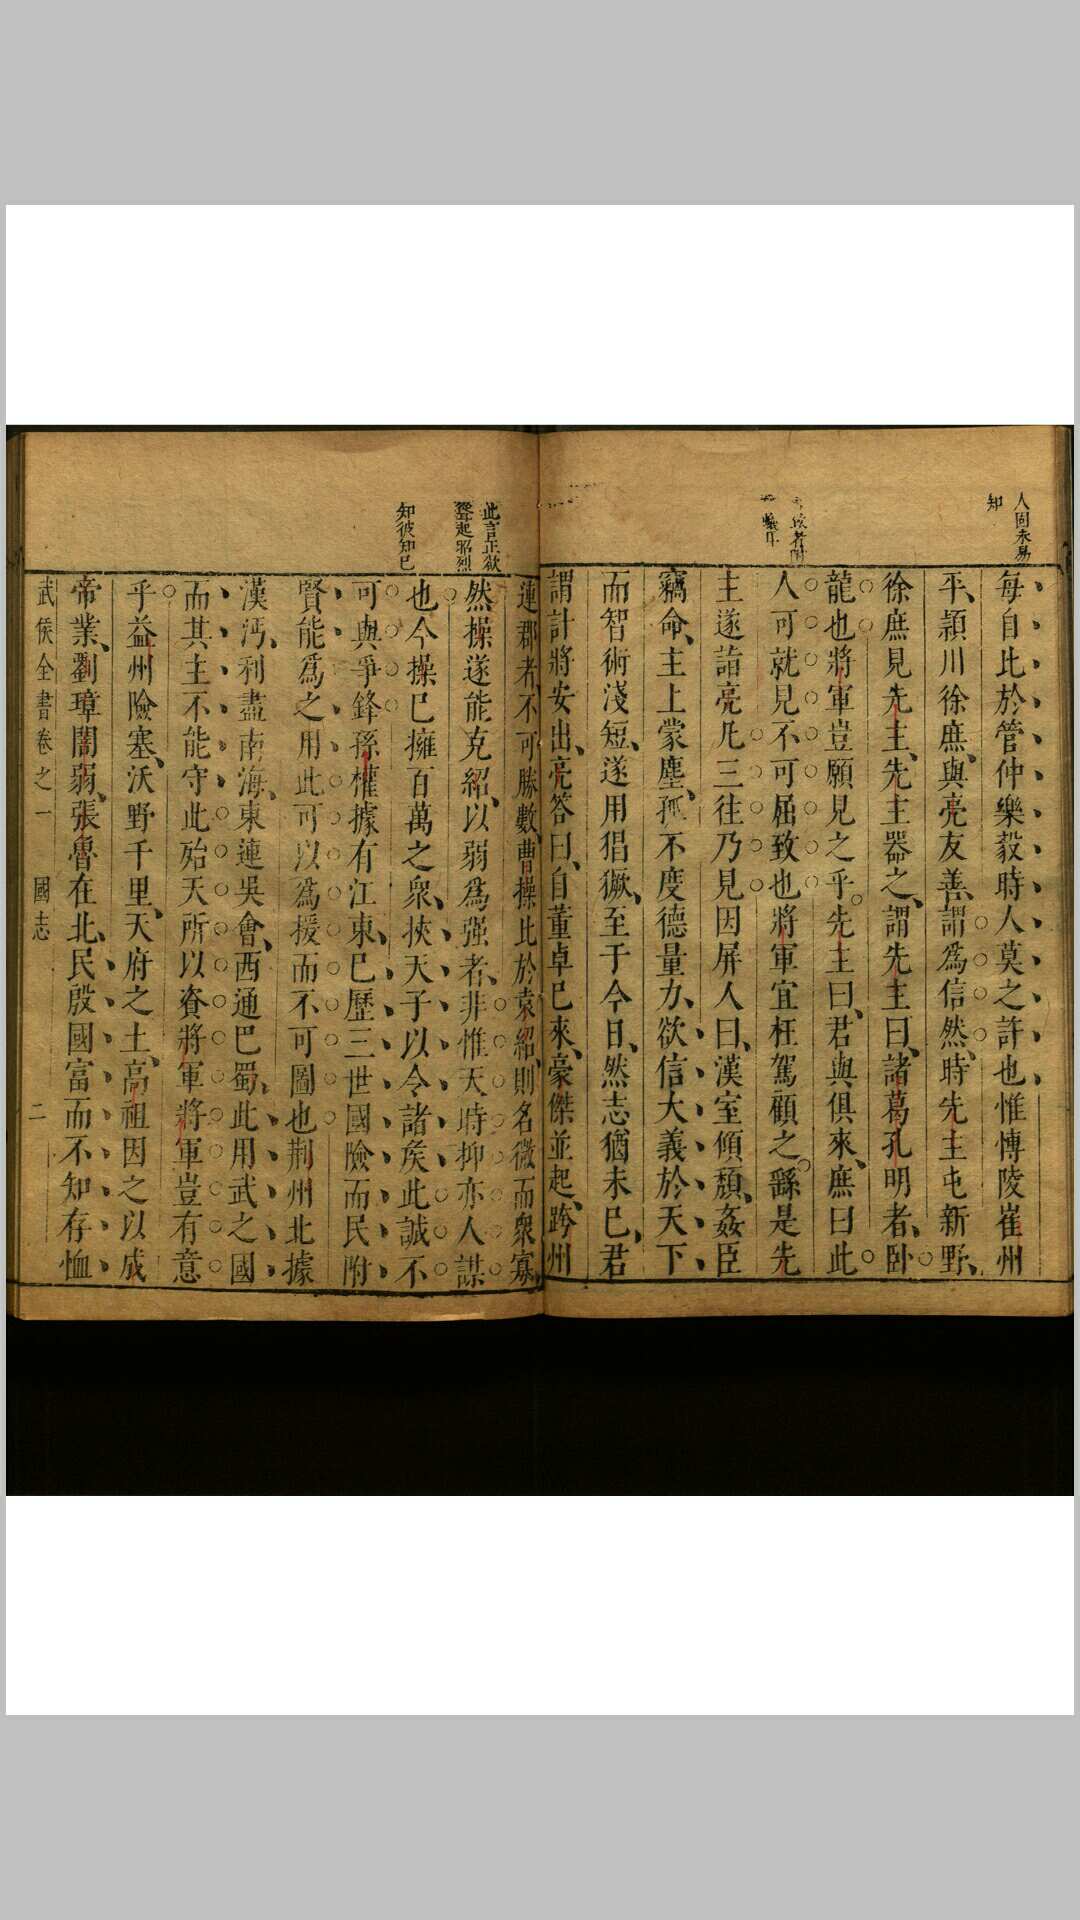 人固未易
知
每自比於管仲樂毅時人莫之許也惟博陵崔州
平、潁川徐庶、與亮友善、謂爲信然、時先主屯新野、
徐庶見先主、先主器之、謂先主曰、諸葛孔明者、卧
龍也將軍豈願見之乎。先主曰、君與俱來、庶曰此
人可就見不可屈致也將軍宜枉駕顧之。繇是先
主遂詣亮凡三往乃見因屏人曰、漢室傾頹、姦臣
竊命、主上蒙塵、孤不度德量力、欲信大義於天下、
而智術淺短、遂用猖獗、至于今日、然志猶未已、君
謂計將安出、亮答曰、自董卓已來、豪傑並起、跨州
此言正欲
聳起昭烈
知彼知已
連郡者、不可勝數、曹操比於袁紹、則名微而衆寡、
然操遂能克紹、以弱爲强者、非惟天時抑亦人謀
也今操已擁百萬之衆、挾天子以令諸侯此誠不
可與爭鋒孫權據有江東、已歷三世國險而民附、
賢能爲之用此可以爲援而不可圖也荆州北據
漢沔、利盡南海、東連吳會、西通巴蜀、此用武之國
而其主不能守此殆天所以資將軍將軍豈有意
乎益州險塞、沃野千里、天府之土、高祖因之以成
帝業、劉璋闇弱、張魯在北、民殷國富而不知存恤
武侯全書卷之一 國志 二